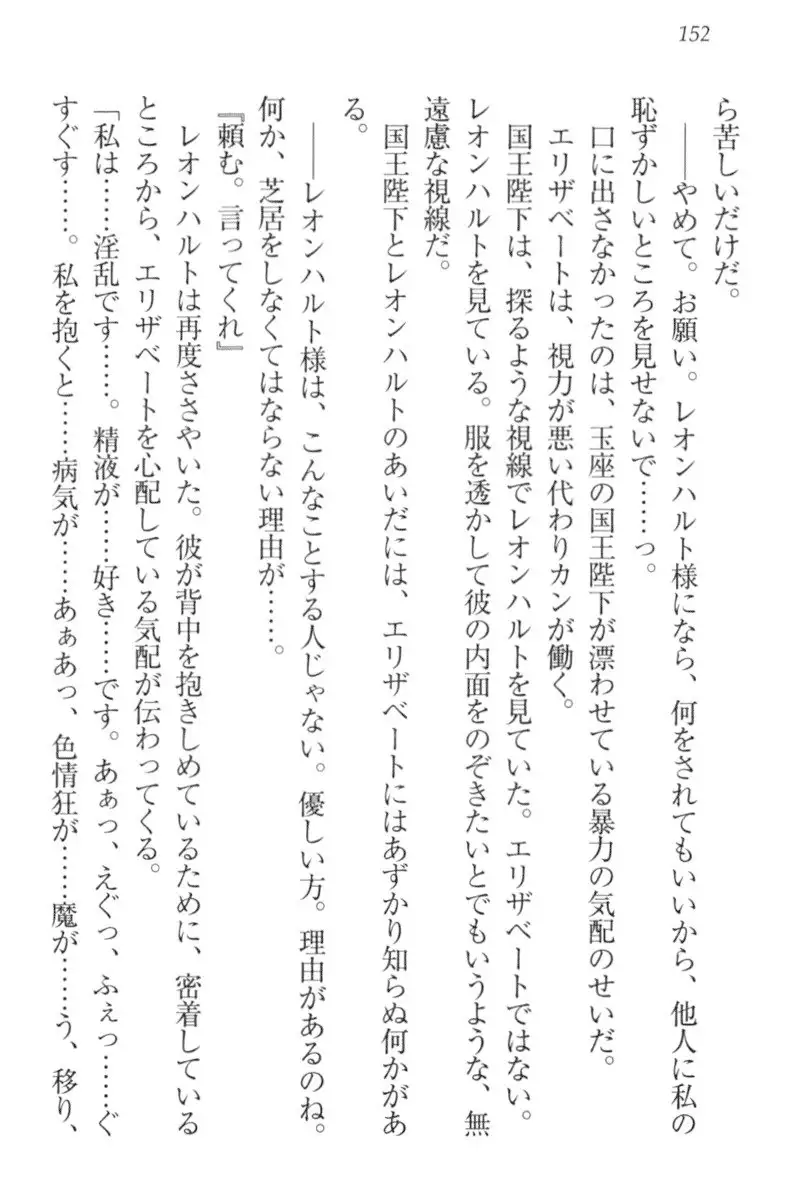 152
ら苦しいだけだ。
――やめて。お願い。レオンハルト様になら、何をされてもいいから、他人に私の
恥ずかしいところを見せないで……っ。
口に出さなかったのは、玉座の国王陛下が漂わせている暴力の気配のせいだ。
エリザベートは、視力が悪い代わりカンが働く。
国王陛下は、探るような視線でレオンハルトを見ていた。エリザベートではない。
レオンハルトを見ている。服を透かして彼の内面をのぞきたいとでもいうような、無
遠慮な視線だ。
国王陛下とレオンハルトのあいだには、エリザベートにはあずかり知らぬ何かがあ
る。
――レオンハルト様は、こんなことする人じゃない。優しい方。理由があるのね。
何か、芝居をしなくてはならない理由が……。
『頼む。言ってくれ』
レオンハルトは再度ささやいた。彼が背中を抱きしめているために、密着している
ところから、エリザベートを心配している気配が伝わってくる。
「私は……淫乱です……。精液が……好き……です。あぁっ、えぐっ、ふぇっ……ぐ
すぐす……。私を抱くと……病気が……あぁあっ、色情狂が……魔が……う、移り、